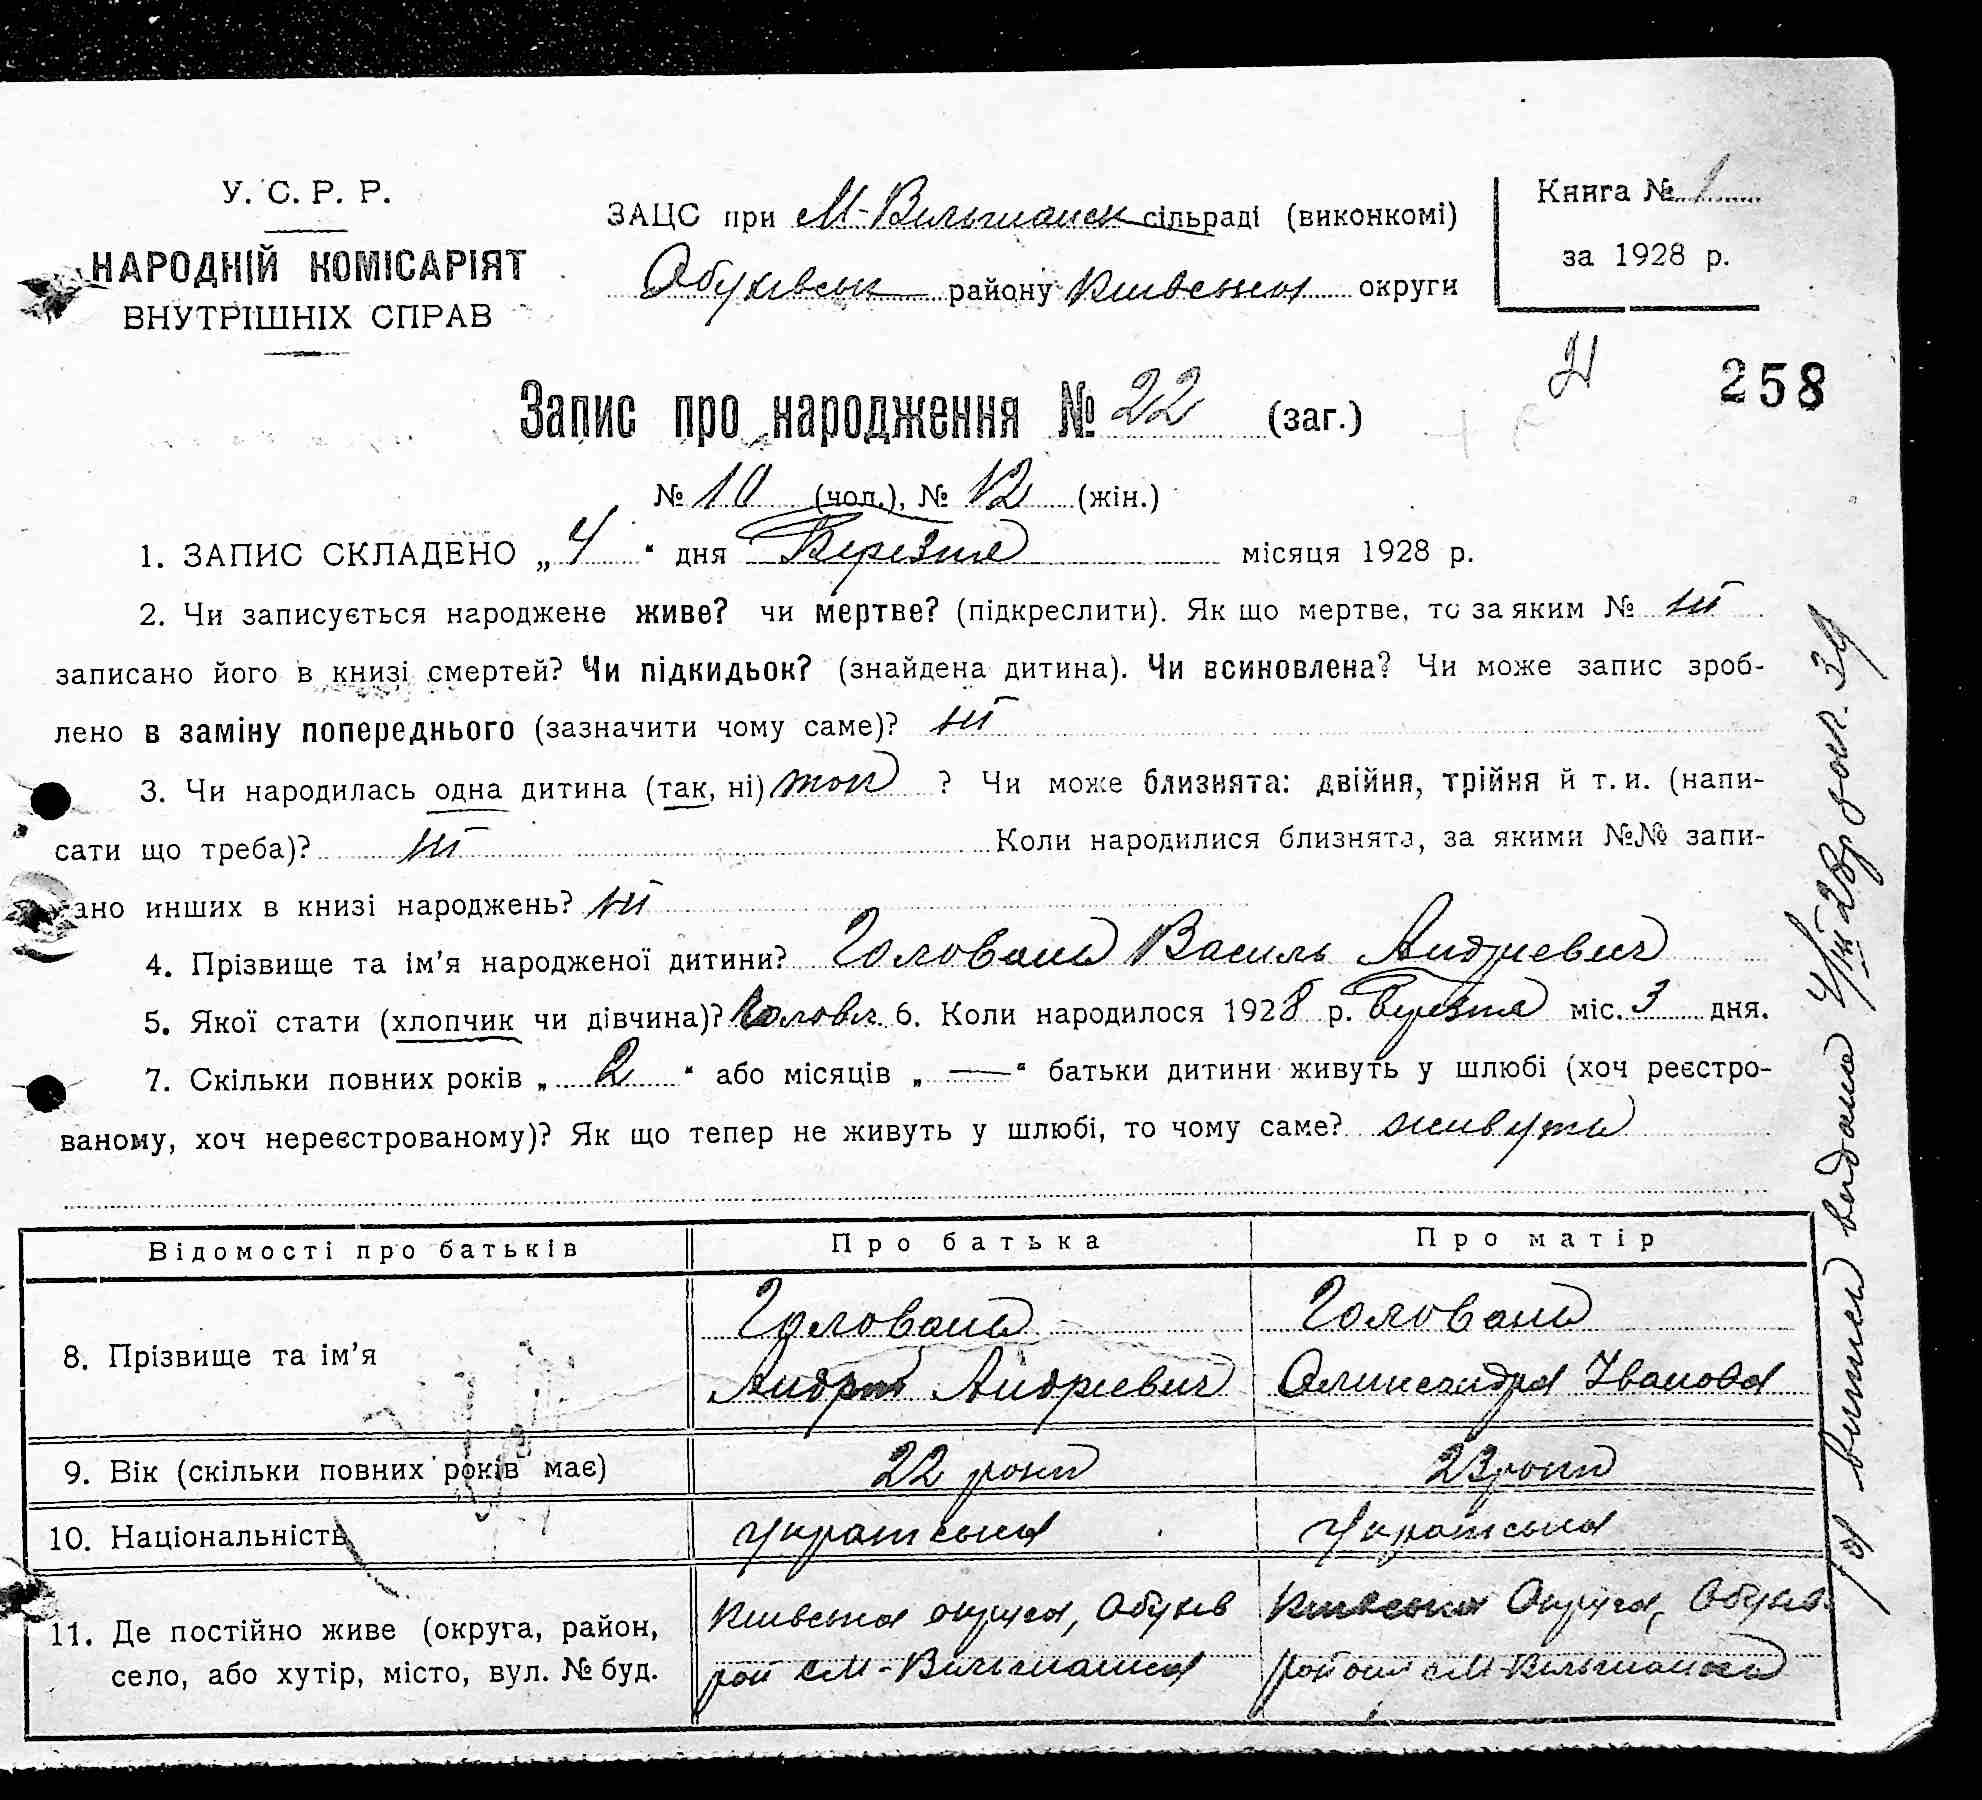 У. С. Р. Р.
НАРОДНІЙ КОМІСАРІЯТ
ВНУТРІШНІХ СПРАВ
ЗАЦС при М-Вільшанськ сільраді (виконкомі)
Обухівськ району Київська округи
Книга № 1
за 1928 р.
258
Запис про народження № 22 (заг.)
№ 10 (чол.), № 12 (жін.)
1. ЗАПИС СКЛАДЕНО „ 4 “ дня Березня місяця 1928 р.
2. Чи записується народжене живе? чи мертве? (підкреслити). Як що мертве, то за яким № ні
записано його в книзі смертей? Чи підкидьок? (знайдена дитина). Чи всиновлена? Чи може запис зроб-
лено в заміну попереднього (зазначити чому саме)? ні
3. Чи народилась одна дитина (так, ні) так ? Чи може близнята: двійня, трійня й т. и. (напи-
сати що треба)? ні Коли народилися близнята, за якими №№ запи-
ано инших в книзі народжень? ні
4. Прізвище та ім’я народженої дитини? Головань Василь Андрієвич
5. Якої стати (хлопчик чи дівчина)? Чоловіч. 6. Коли народилося 1928 р. Березня міс. 3 дня.
7. Скільки повних років „ 2 “ або місяців „ — “ батьки дитини живуть у шлюбі (хоч реєстро-
ваному, хоч нереєстрованому)? Як що тепер не живуть у шлюбі, то чому саме? живуть
Відомості про батьків Про батька Про матір
8. Прізвище та ім’я
Головань
Андрій Андрієвич
Головань
Олександра Іванова
9. Вік (скільки повних років має) 22 роки 23 роки
10. Національність Українська Українська
11. Де постійно живе (округа, район,
село, або хутір, місто, вул. № буд.
Київська округа, Обухів
рай с М-Вільшанка
Київська Округа, Обухів.
район с М-Вільшанка
витяг видано